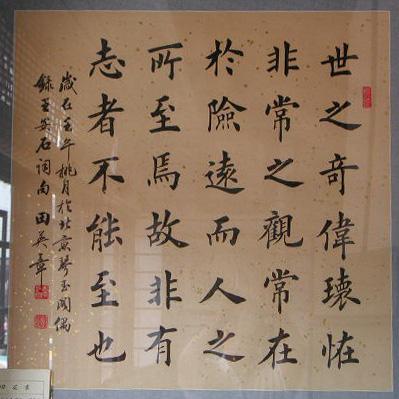 世之奇偉瓌怪
非常之觀常在
於險遠而人之
所至焉故非有
志者不能至也
歲在壬午桃月於北京琴玉閣偶
錄王安石詞句田英章